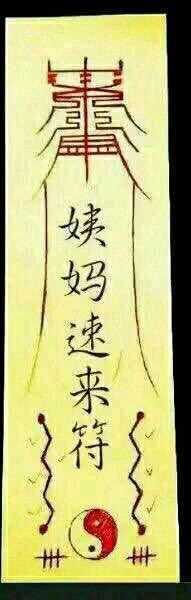 姨妈速来符